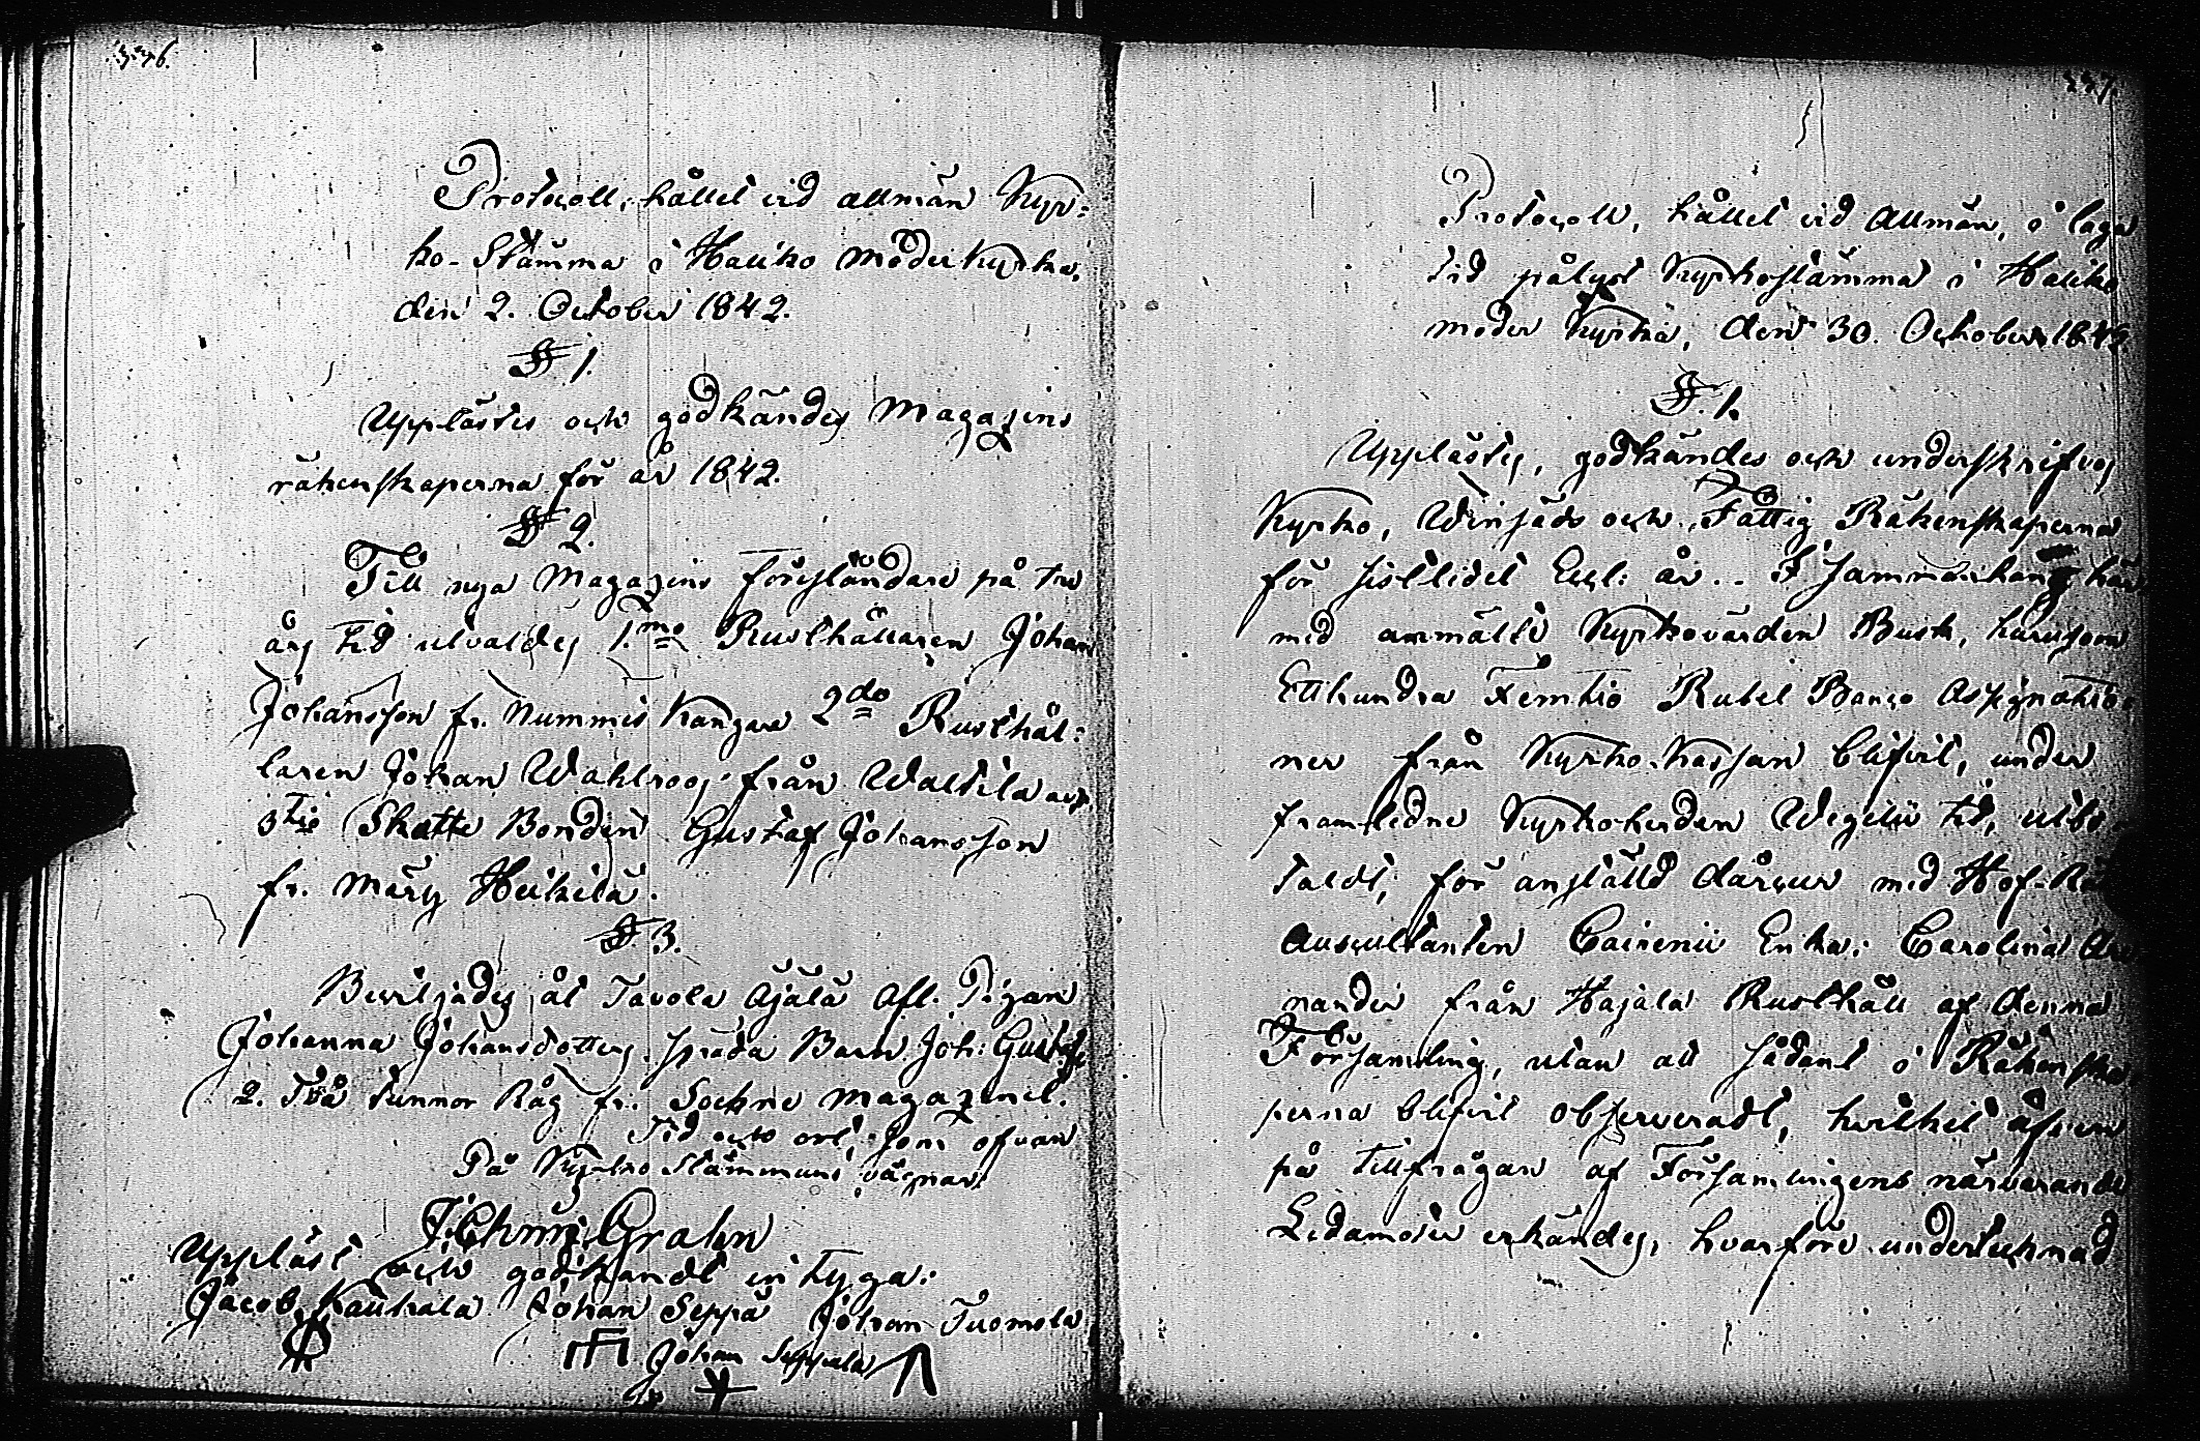 336.
Protocoll, hållet vid allmän Kyr-
ko-Stämma i Haliko moderkyrka,
den 2. October 1842.
§ 1.
Upplästes och godkändes Magazins
räkenskaperna för år 1842.
§ 2.
Till nya Magazins föreståndare på tre
års tid utvaldes 1.mo Rusthållaren Johan
Johansson fr. Nummis Kangare 2do Rusthål-
laren Johan Wahlroos från Waltila och
3tio Skatte Bonden Gustaf Johansson
fr. Märy Heikilä.
§ 3.
Beviljades åt Tavola Ajälä Afl. Pigan
Johanna Johansdotters späda Barn Joh: Gustaf
2. Två tunnor Råg fr. Sockne magazinet.
Tid och ort som ofvan
På Kyrko Stämmans vägnar:
Grahn
Uppläst och godkändt intyga:
Jacob Kaukala Johan Seppä Johan Tuomola
Johan Seppälä
337.
Protocoll, hållet vid Allmän, i laga
tid pålyst Kyrkostämma i Haliko
moder Kyrka, den 30. October 1842
§. 1.
Upplästes, godkändes och underskrifvos
Kyrko, Winsäds och Fattig Räkenskaperna
för sistlidet Eccl: år.. I sammanhang här
med anmälte Kyrkovärden Busk, hurusom
Etthundra Femtio Rubel Banco Assignatio-
ner från Kyrko-Kassan blifvit, under
framledne Kyrkoherden Wegelii tid, utbe-
taldt, för anställd dårcur med Hof-Rätts
Auscultanten Cairenii Enka: Carolina
nander från Hajala Rusthåll af denna
Församling, utan att sådant i Räkenska-
perna blifvit observeradt, hvilket äfven
på tillfrågan af Församlingens närvarande
Ledamöter erkändes, hvarföre undertecknad